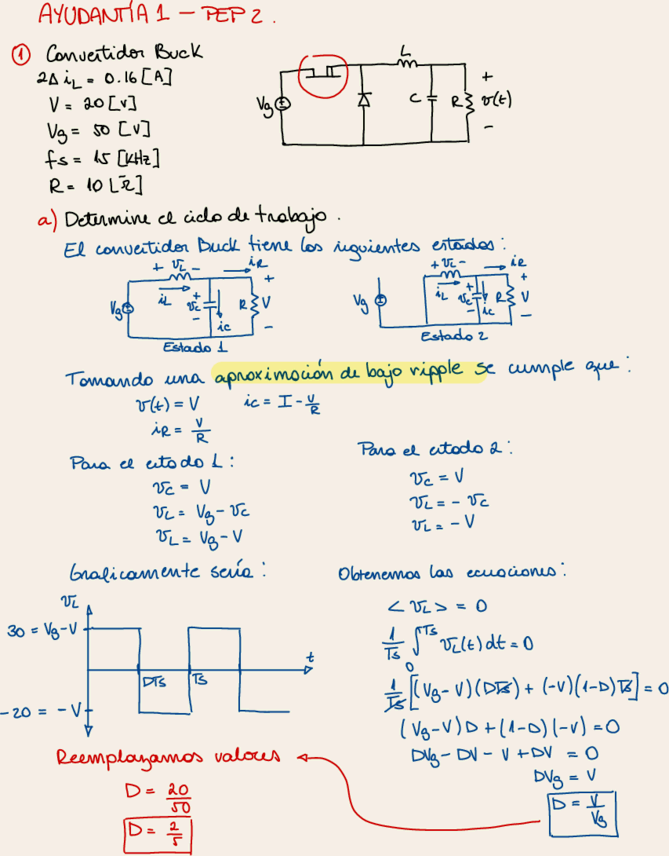 AYUDANTÍA 1 - PEP 2.
① Convertidor Buck
2Δ iL = 0.16 [A]
V = 20 [V]
Vg = 50 [V]
fs = 15 [KHz]
R = 10 [Ω]
Vg
L
C
R
+
v(t)
-
a) Determine el ciclo de trabajo.
El convertidor Buck tiene los siguientes estados:
+ vL - iR
Vg iL + vc - ic R + V -
Estado 1
+ vL - iR
Vg iL + vc - ic R + V -
Estado 2
Tomando una aproximación de bajo ripple se cumple que:
v(t) = V ic = I - V/R
iR = V/R
Para el estado 1:
vc = V
vL = Vg - vc
vL = Vg - V
Para el estado 2:
vc = V
vL = - vc
vL = - V
Graficamente sería:
vL
30 = Vg-V
t
DTs Ts
-20 = -V
Obtenemos las ecuaciones:
< vL > = 0
1/Ts ∫₀^Ts vL(t) dt = 0
1/Ts [(Vg - V)(DTs) + (-V)(1-D)Ts] = 0
(Vg - V)D + (1-D)(-V) = 0
DVg - DV - V + DV = 0
DVg = V
D = V/Vg
Reemplazamos valores
D = 20/50
D = 2/5